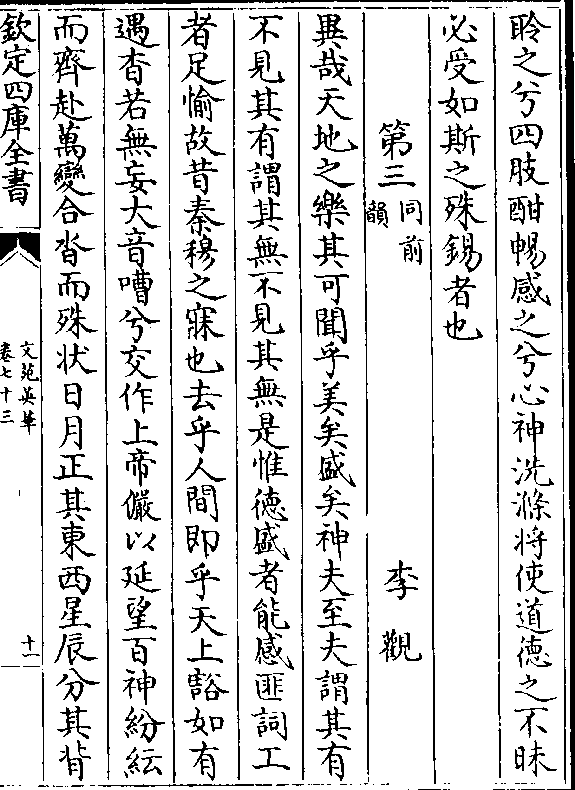 聆之兮四肢酣暢感之兮心神洗滌將使道德之不昧
必受如斯之殊錫者也
第三 同前韻 李觀
異哉天地之樂其可聞乎美矣盛矣神夫至夫謂其有
不見其有謂其無不見其無是惟德盛者能感匪詞工
者足愉故昔秦穆之寐也去乎人間即乎天上豁如有
遇杳若無妄大音嘈兮交作上帝儼以延望百神紛紜
而齊赴萬變合沓而殊狀日月正其東西星辰分其背
欽定四庫全書
文苑英華
卷七十三
十一